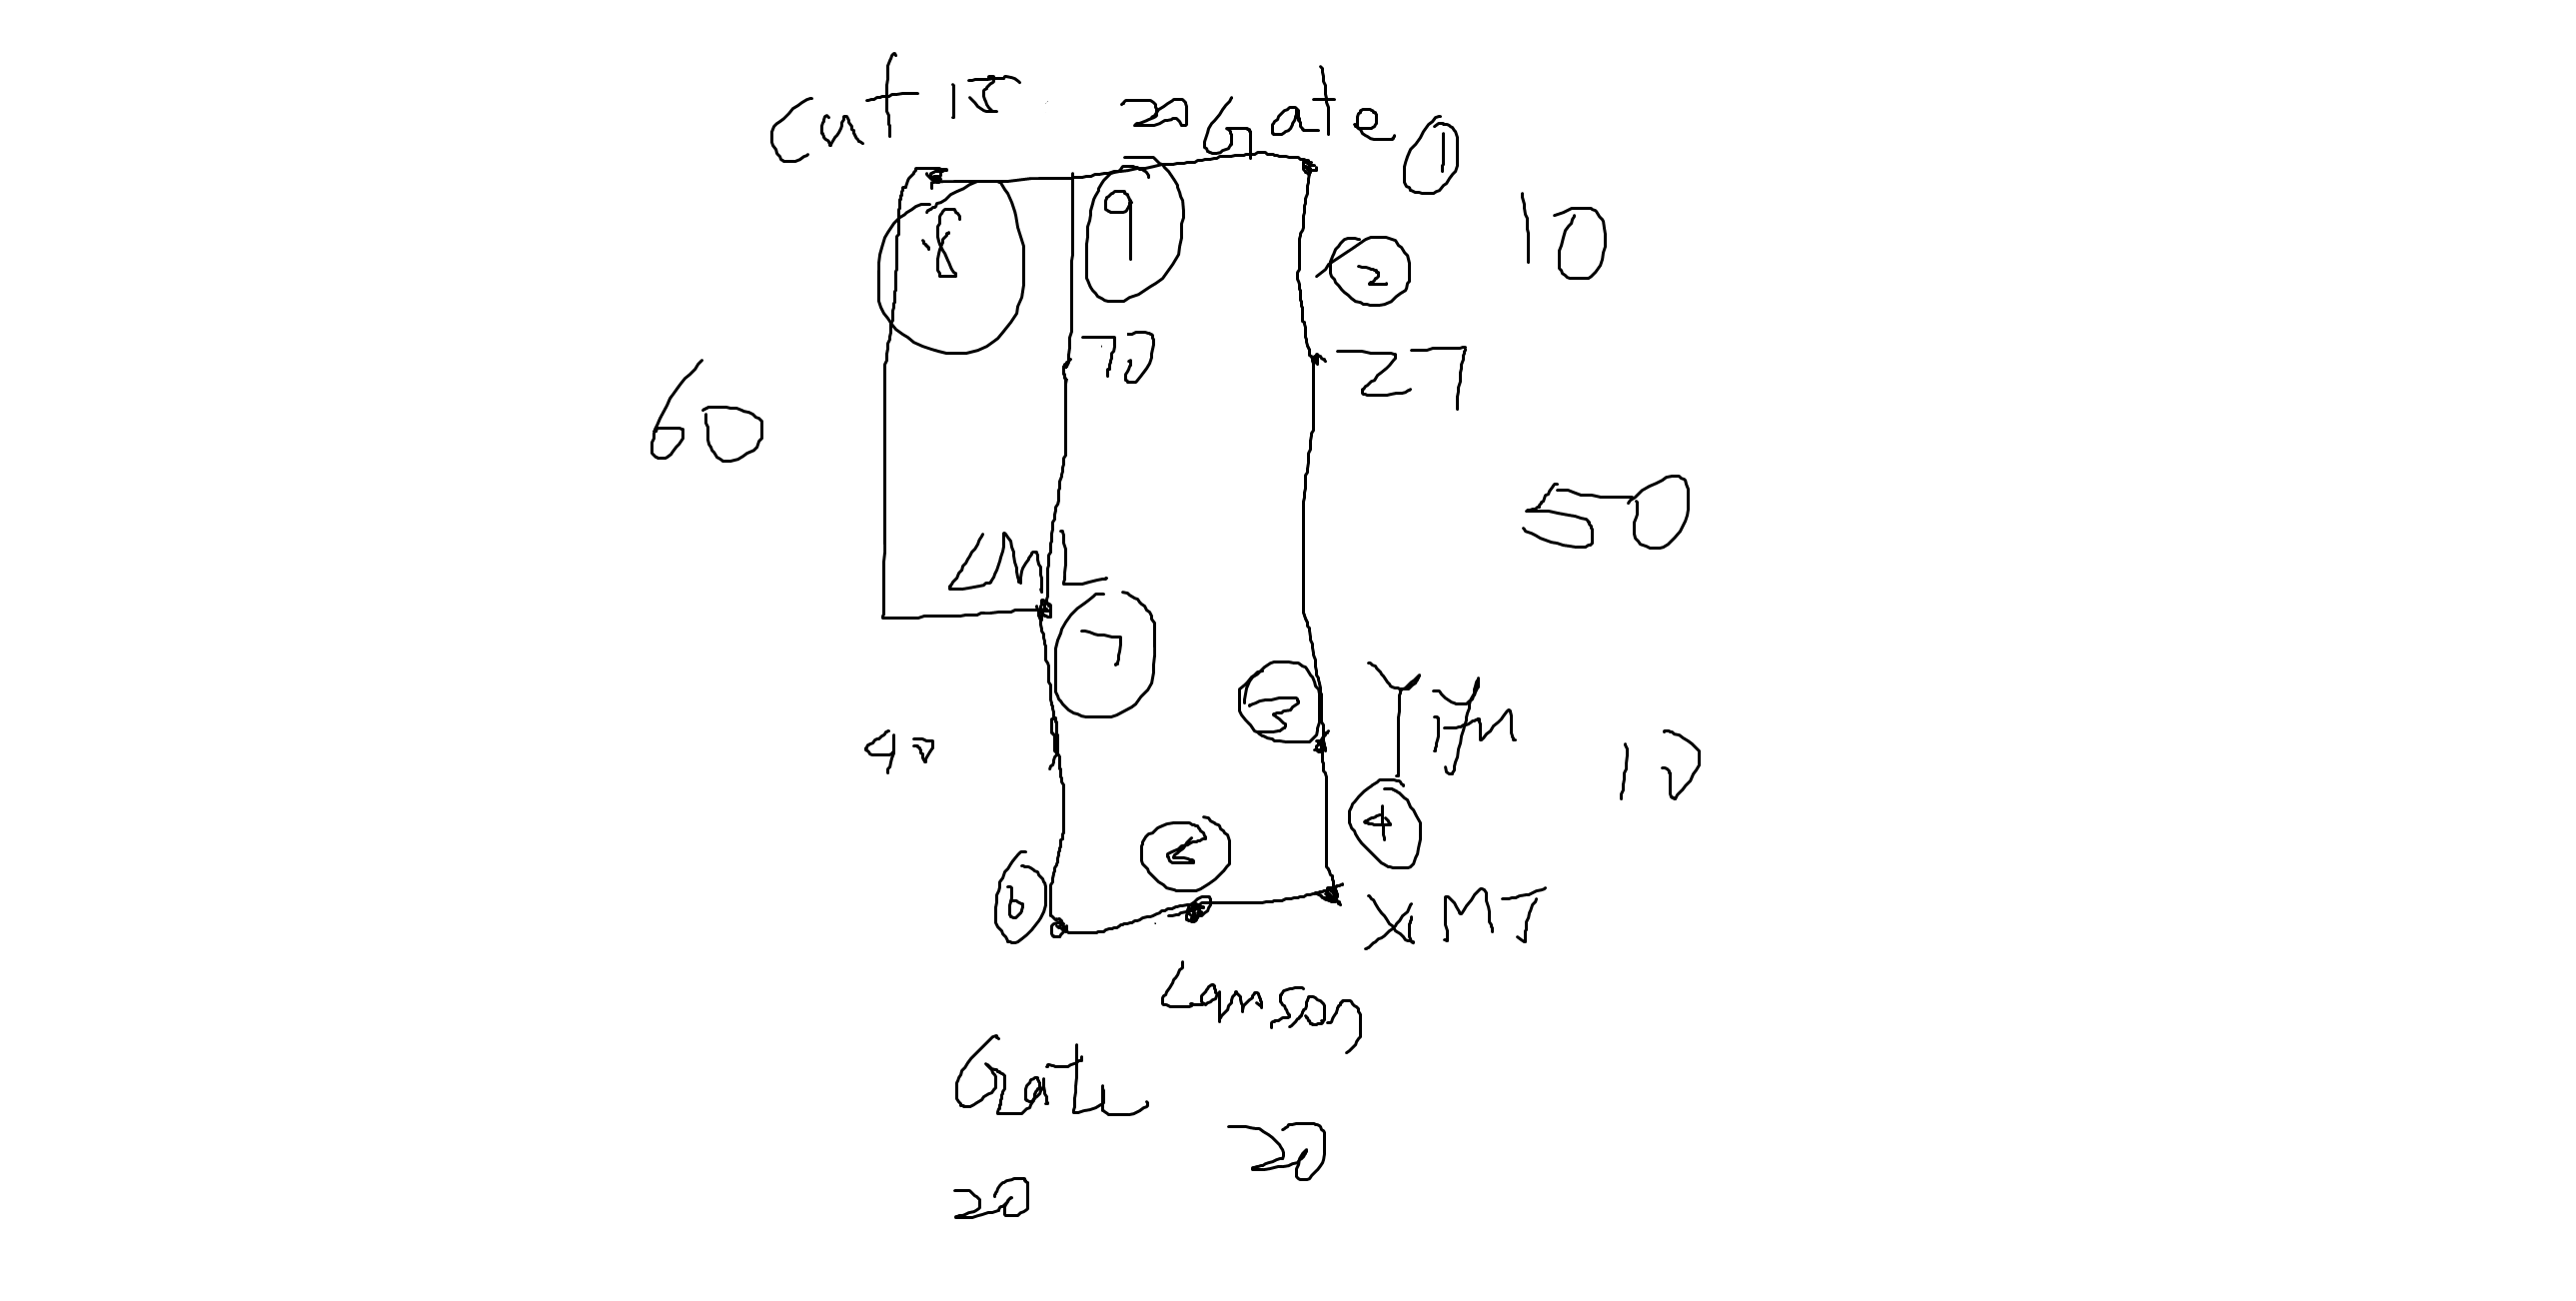 Cat 15 20 Gate 1
8 9 2 10
70 27
60
50
LML
7 3 YIFM
40 10
4
6 5
XMT
Lamson
Gate
20
20